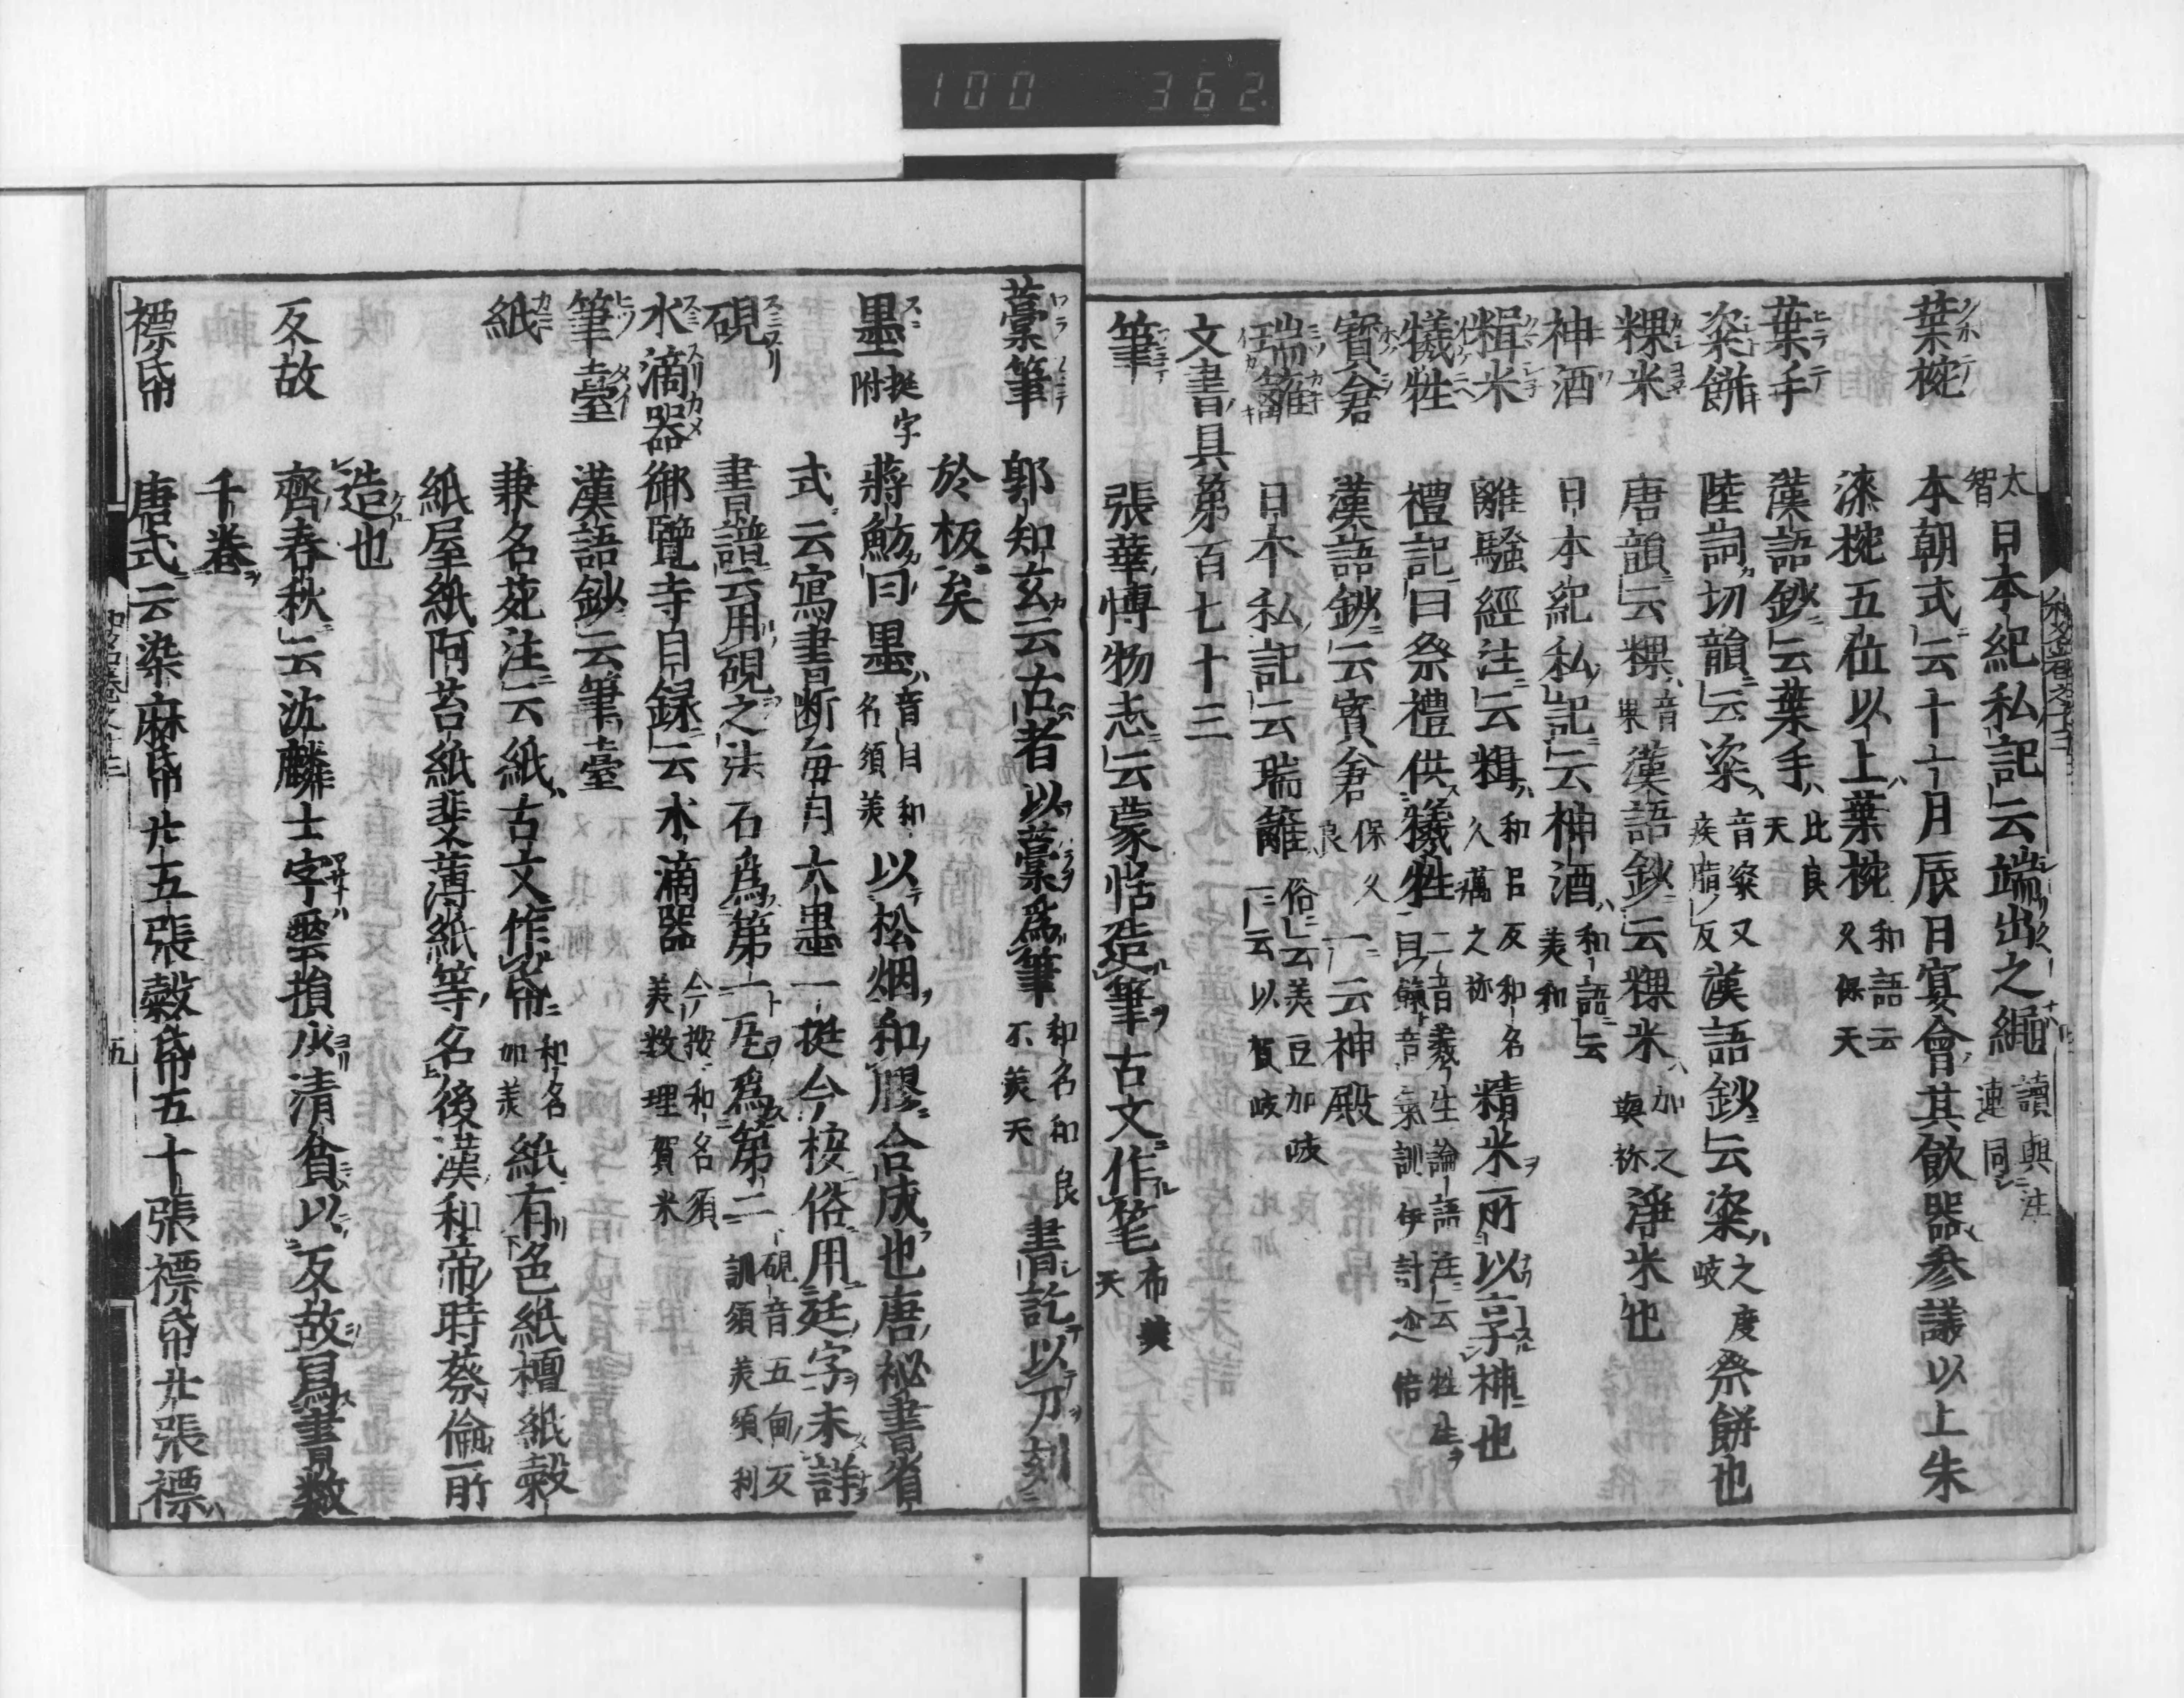 100 362
太智 日本紀私記云端出之繩 讀與注連同
葉椀 本朝式云十一月辰日宴會其飲器参議以上朱
漆椀五位以上葉椀 和語云久保天
葉手 漢語鈔云葉手 比良天
粢餅 陸詞切韻云粢 音粢又疾脂反 漢語鈔云粢 之度岐 祭餅也
粿米 唐韻云粿 音果 漢語鈔云粿米 加之與祢 淨米也
神酒 日本紀私記云神酒 和語云美和
糈米 離騒經注云糈 和呂反和名久万之祢 精米所以享神也
犠牲 禮記曰祭禮供犠牲
寳倉 漢語鈔云寳倉 保久良 一云神殿
瑞籬 日本私記云瑞籬 俗云美豆加岐 一云以賀岐
文書具第百七十三
筆 張華博物志云蒙恬造筆古文作笔 布美天
藁筆 郭知玄云古者以藁爲筆 和名和良不美天 書訖以刀刻
於板矣
墨 挺字附 蔣魴曰墨 音目和名須美 以松烟和膠合成也唐祕書省
式云寫書断每月大墨一挺今桉俗用廷字未詳
硯 書譜云用硯之法石爲第一瓦爲第二 硯音五甸反訓須美須利
水滴器 御覽寺目録云水滴器 今按和名須美数理賀米
筆臺 漢語鈔云筆臺
紙 兼名苑注云紙古文作帋 和名加美 紙有色紙檀紙穀
紙屋紙阿苔紙斐薄紙等名後漢和帝時蔡倫所
造也
反故 齊春秋云沈麟士字雲損少清貧以反故寫書数
千巻
標帋 唐式云染麻帋廿五張穀帋五十張標帋廿張標
五